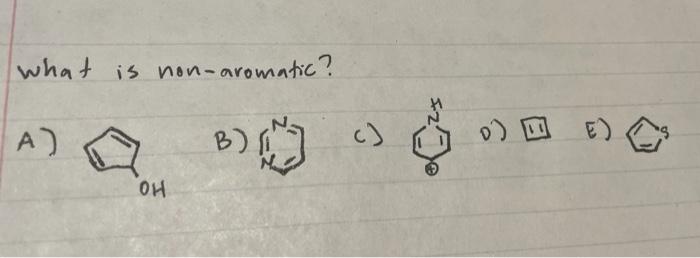 What is non-aromatic?
A) OH B) N N C) N H ⊕ D) E) S